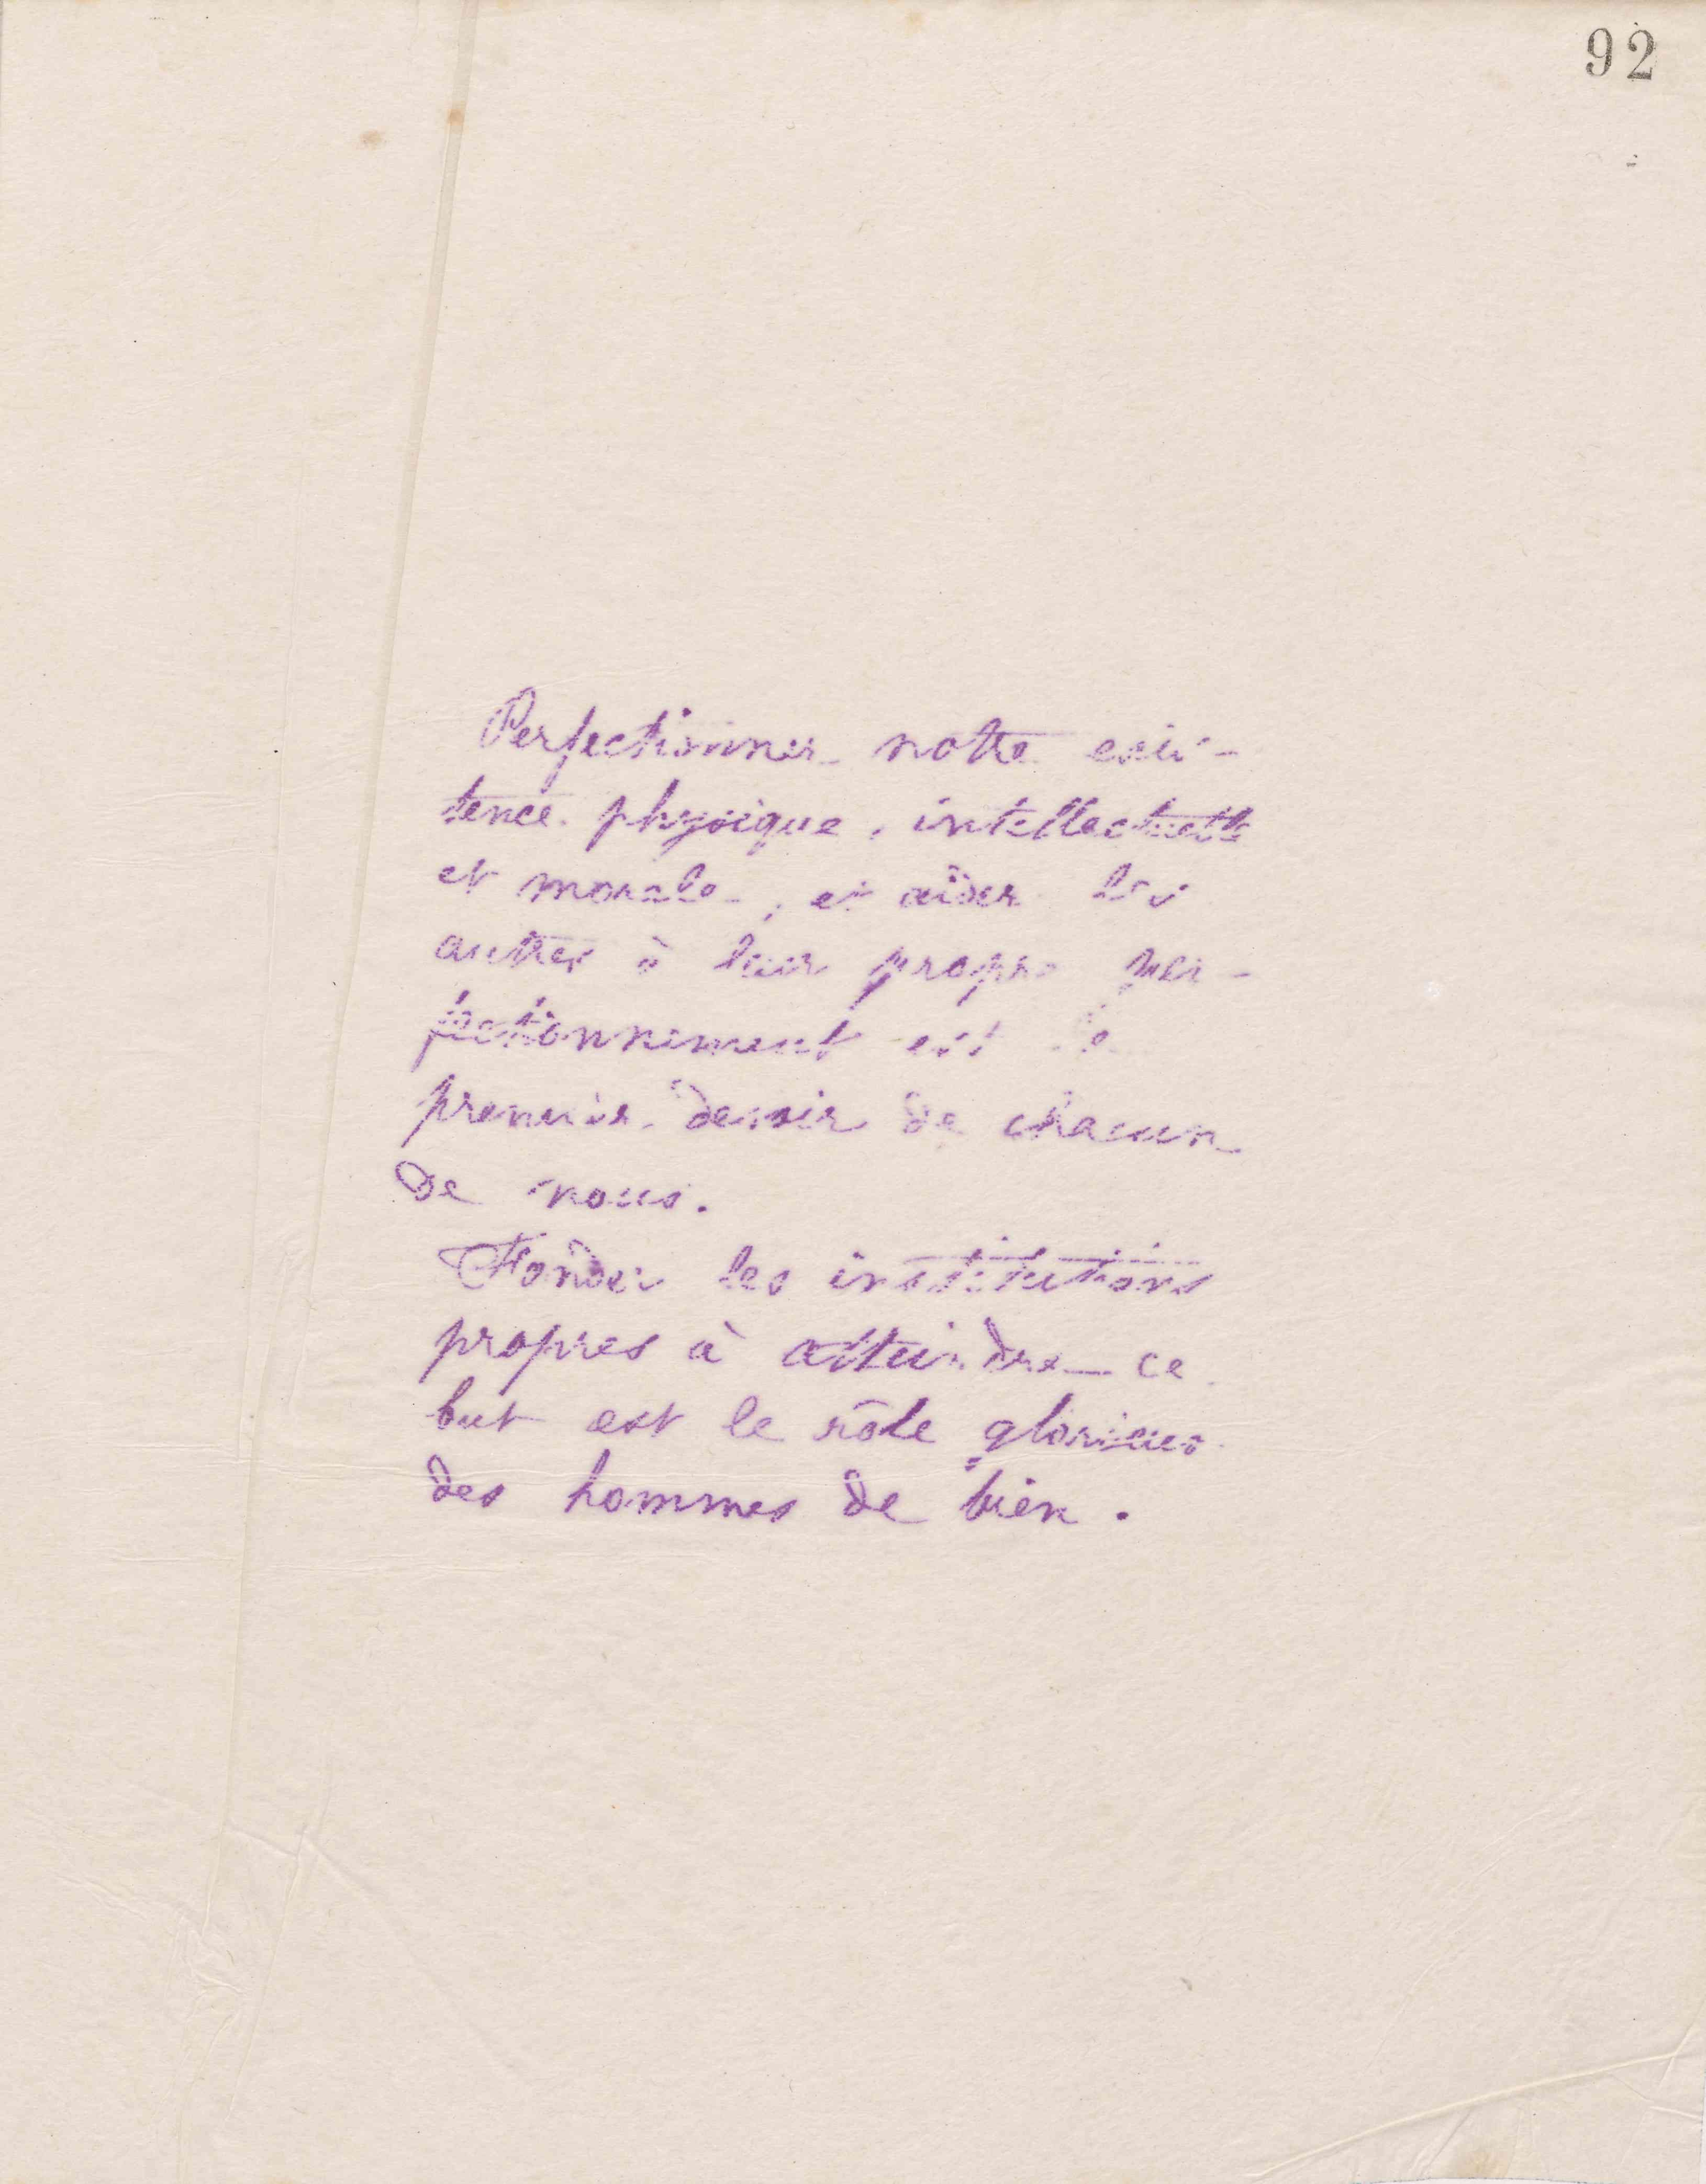 92
Perfectionner notre exis-
tence physique, intellectuelle
et morale, et aider les
autres à leur propre per-
fectionnement est le
premier devoir de chacun
de nous.
Fonder les institutions
propres à atteindre ce
but est le rôle glorieux
des hommes de bien.